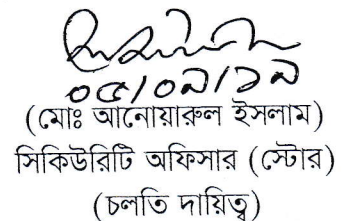 ০৫/০৯/১৯
(মোঃ আনোয়ারুল ইসলাম)
সিকিউরিটি অফিসার (স্টোর)
(চলতি দায়িত্ব)